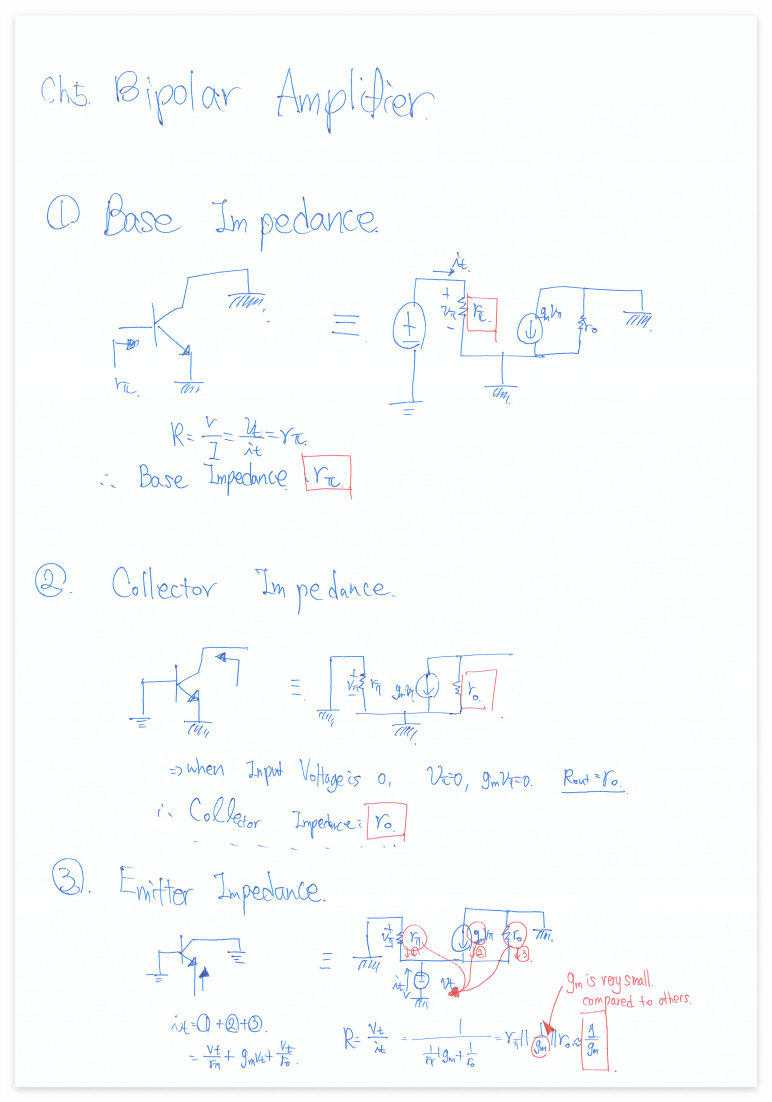 Ch5. Bipolar Amplifier.
① Base Impedance.
it.
+
Vπ
-
rπ.
gmVπ
ro
rπ.
R = V/I = Vt/it = rπ.
∴ Base Impedance rπ.
②. Collector Impedance.
+
Vπ
-
rπ
gmVπ
ro.
⇒ when Input Voltage is 0, Vπ=0, gmVπ=0. Rout = ro.
∴ Collector Impedance: ro.
③. Emitter Impedance.
+
Vπ
-
rπ
gmVπ
ro
↓①
↓②
↓3
it
Vt
gm is very small.
compared to others.
it = ① + ② + ③.
= Vt/rπ + gmVt + Vt/ro
R = Vt/it = 1/(1/rπ + gm + 1/ro) = rπ || 1/gm || ro ≈ 1/gm.